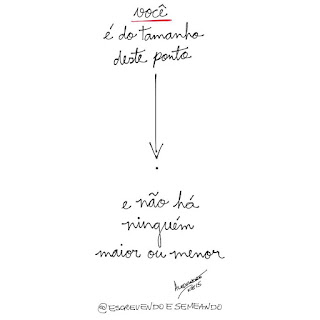 você
é do tamanho
deste ponto
.
e não há
ninguém
maior ou menor
@ESCREVENDO E SEMEANDO